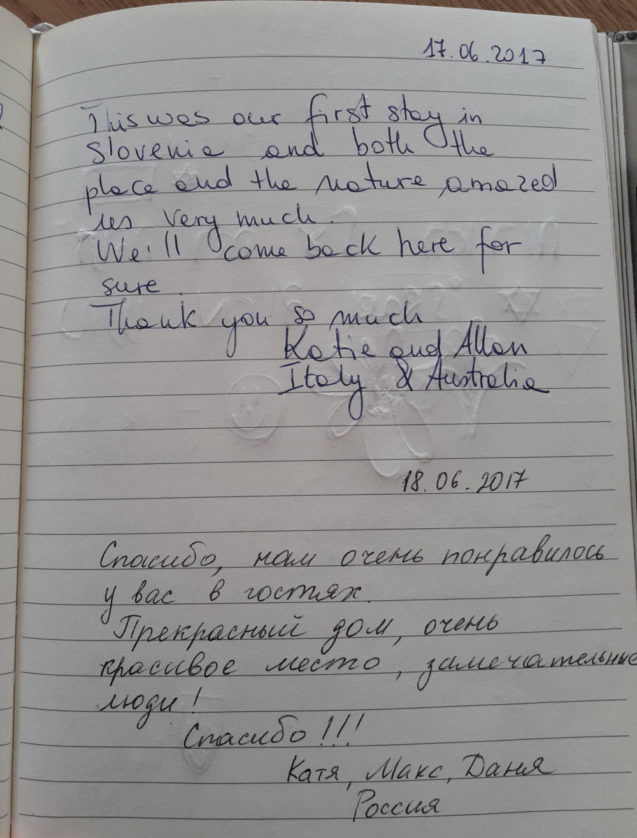 17.06.2017
This was our first stay in
Slovenia and both the
place and the nature amazed
us very much.
We'll come back here for
sure.
Thank you so much
Katie and Allan
Italy & Australia
18.06.2017
Спасибо, нам очень понравилось
у вас в гостях.
Прекрасный дом, очень
красивое место, замечательные
люди!
Спасибо!!!
Катя, Макс, Даня
Россия